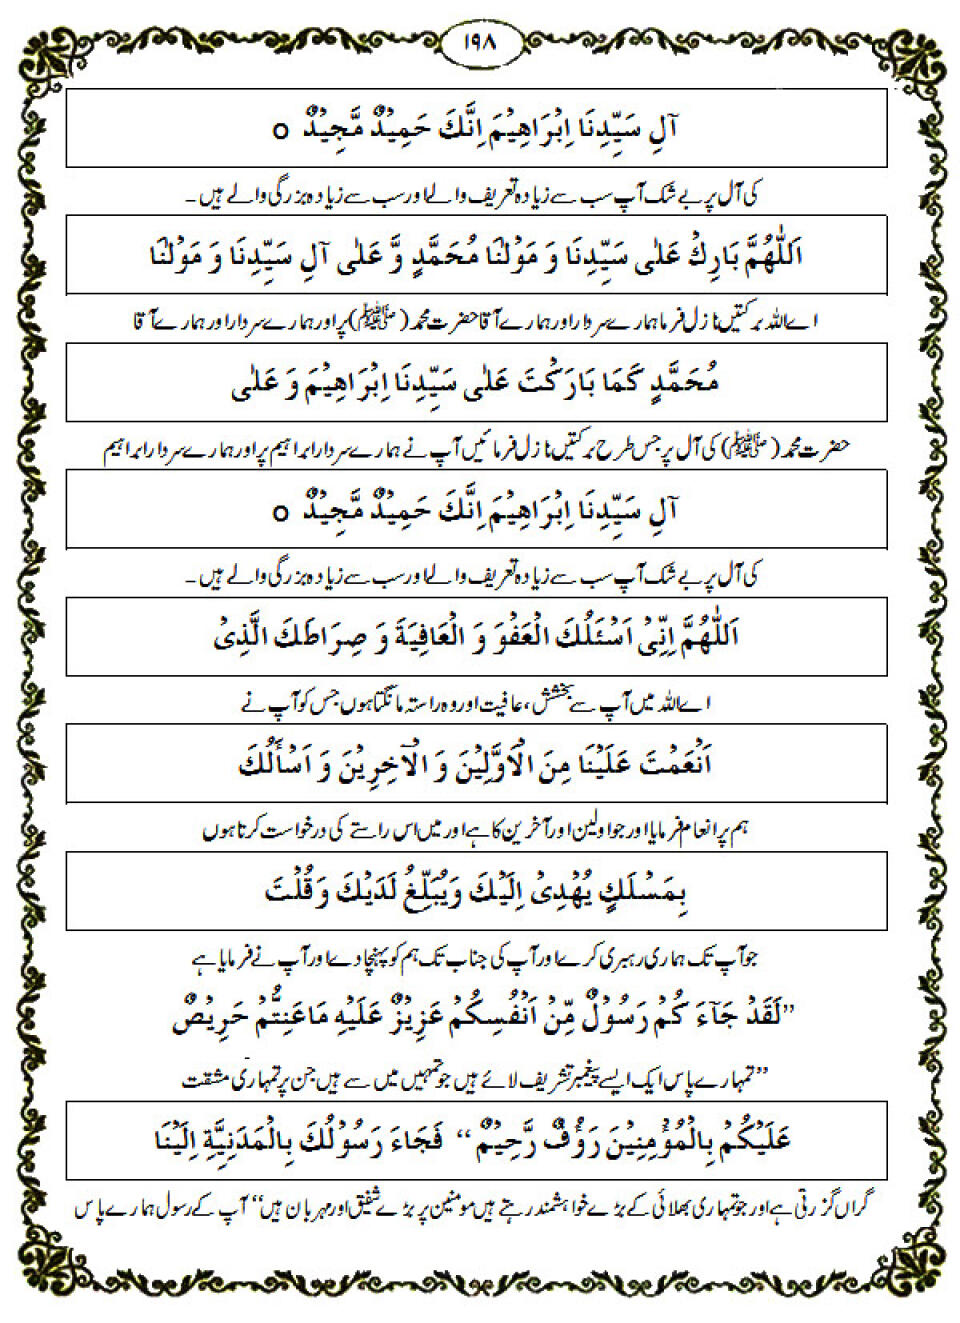 ۱۹۸
آلِ سَيِّدِنَا اِبْرَاهِيْمَ اِنَّكَ حَمِيْدٌ مَّجِيْدٌ ○
کی آل پر بے شک آپ سب سے زیادہ تعریف والے اور سب سے زیادہ بزرگی والے ہیں۔
اَللّٰهُمَّ بَارِكْ عَلٰى سَيِّدِنَا وَ مَوْلٰنَا مُحَمَّدٍ وَّ عَلٰى آلِ سَيِّدِنَا وَ مَوْلٰنَا
اے اللہ برکتیں نازل فرما ہمارے سردار اور ہمارے آقا حضرت محمد (ﷺ) پر اور ہمارے سردار اور ہمارے آقا
مُحَمَّدٍ كَمَا بَارَكْتَ عَلٰى سَيِّدِنَا اِبْرَاهِيْمَ وَ عَلٰى
حضرت محمد (ﷺ) کی آل پر جس طرح برکتیں نازل فرمائیں آپ نے ہمارے سردار ابراہیم پر اور ہمارے سردار ابراہیم
آلِ سَيِّدِنَا اِبْرَاهِيْمَ اِنَّكَ حَمِيْدٌ مَّجِيْدٌ ○
کی آل پر بے شک آپ سب سے زیادہ تعریف والے اور سب سے زیادہ بزرگی والے ہیں۔
اَللّٰهُمَّ اِنِّىْ اَسْئَلُكَ الْعَفْوَ وَ الْعَافِيَةَ وَ صِرَاطَكَ الَّذِىْ
اے اللہ میں آپ سے بخشش، عافیت اور وہ راستہ مانگتا ہوں جس کو آپ نے
اَنْعَمْتَ عَلَيْنَا مِنَ الْاَوَّلِيْنَ وَ الْآخِرِيْنَ وَ اَسْأَلُكَ
ہم پر انعام فرمایا اور جو اولین اور آخرین کا ہے اور میں اس راستے کی درخواست کرتا ہوں
بِمَسْلَكٍ يُهْدِىْ اِلَيْكَ وَيُبَلِّغُ لَدَيْكَ وَقُلْتَ
جو آپ تک ہماری رہبری کرے اور آپ کی جناب تک ہم کو پہنچا دے اور آپ نے فرمایا ہے
”لَقَدْ جَآءَ كُمْ رَسُوْلٌ مِّنْ اَنْفُسِكُمْ عَزِيْزٌ عَلَيْهِ مَاعَنِتُّمْ حَرِيْصٌ
”تمہارے پاس ایک ایسے پیغمبر تشریف لائے ہیں جو تمہیں میں سے ہیں جن پر تمہاری مشقت
عَلَيْكُمْ بِالْمُؤْمِنِيْنَ رَؤُفٌ رَّحِيْمٌ“ فَجَاءَ رَسُوْلُكَ بِالْمَدَنِيَّةِ اِلَيْنَا
گراں گزرتی ہے اور جو تمہاری بھلائی کے بڑے خواہشمند رہتے ہیں مومنین پر بڑے شفیق اور مہربان ہیں“ آپ کے رسول ہمارے پاس